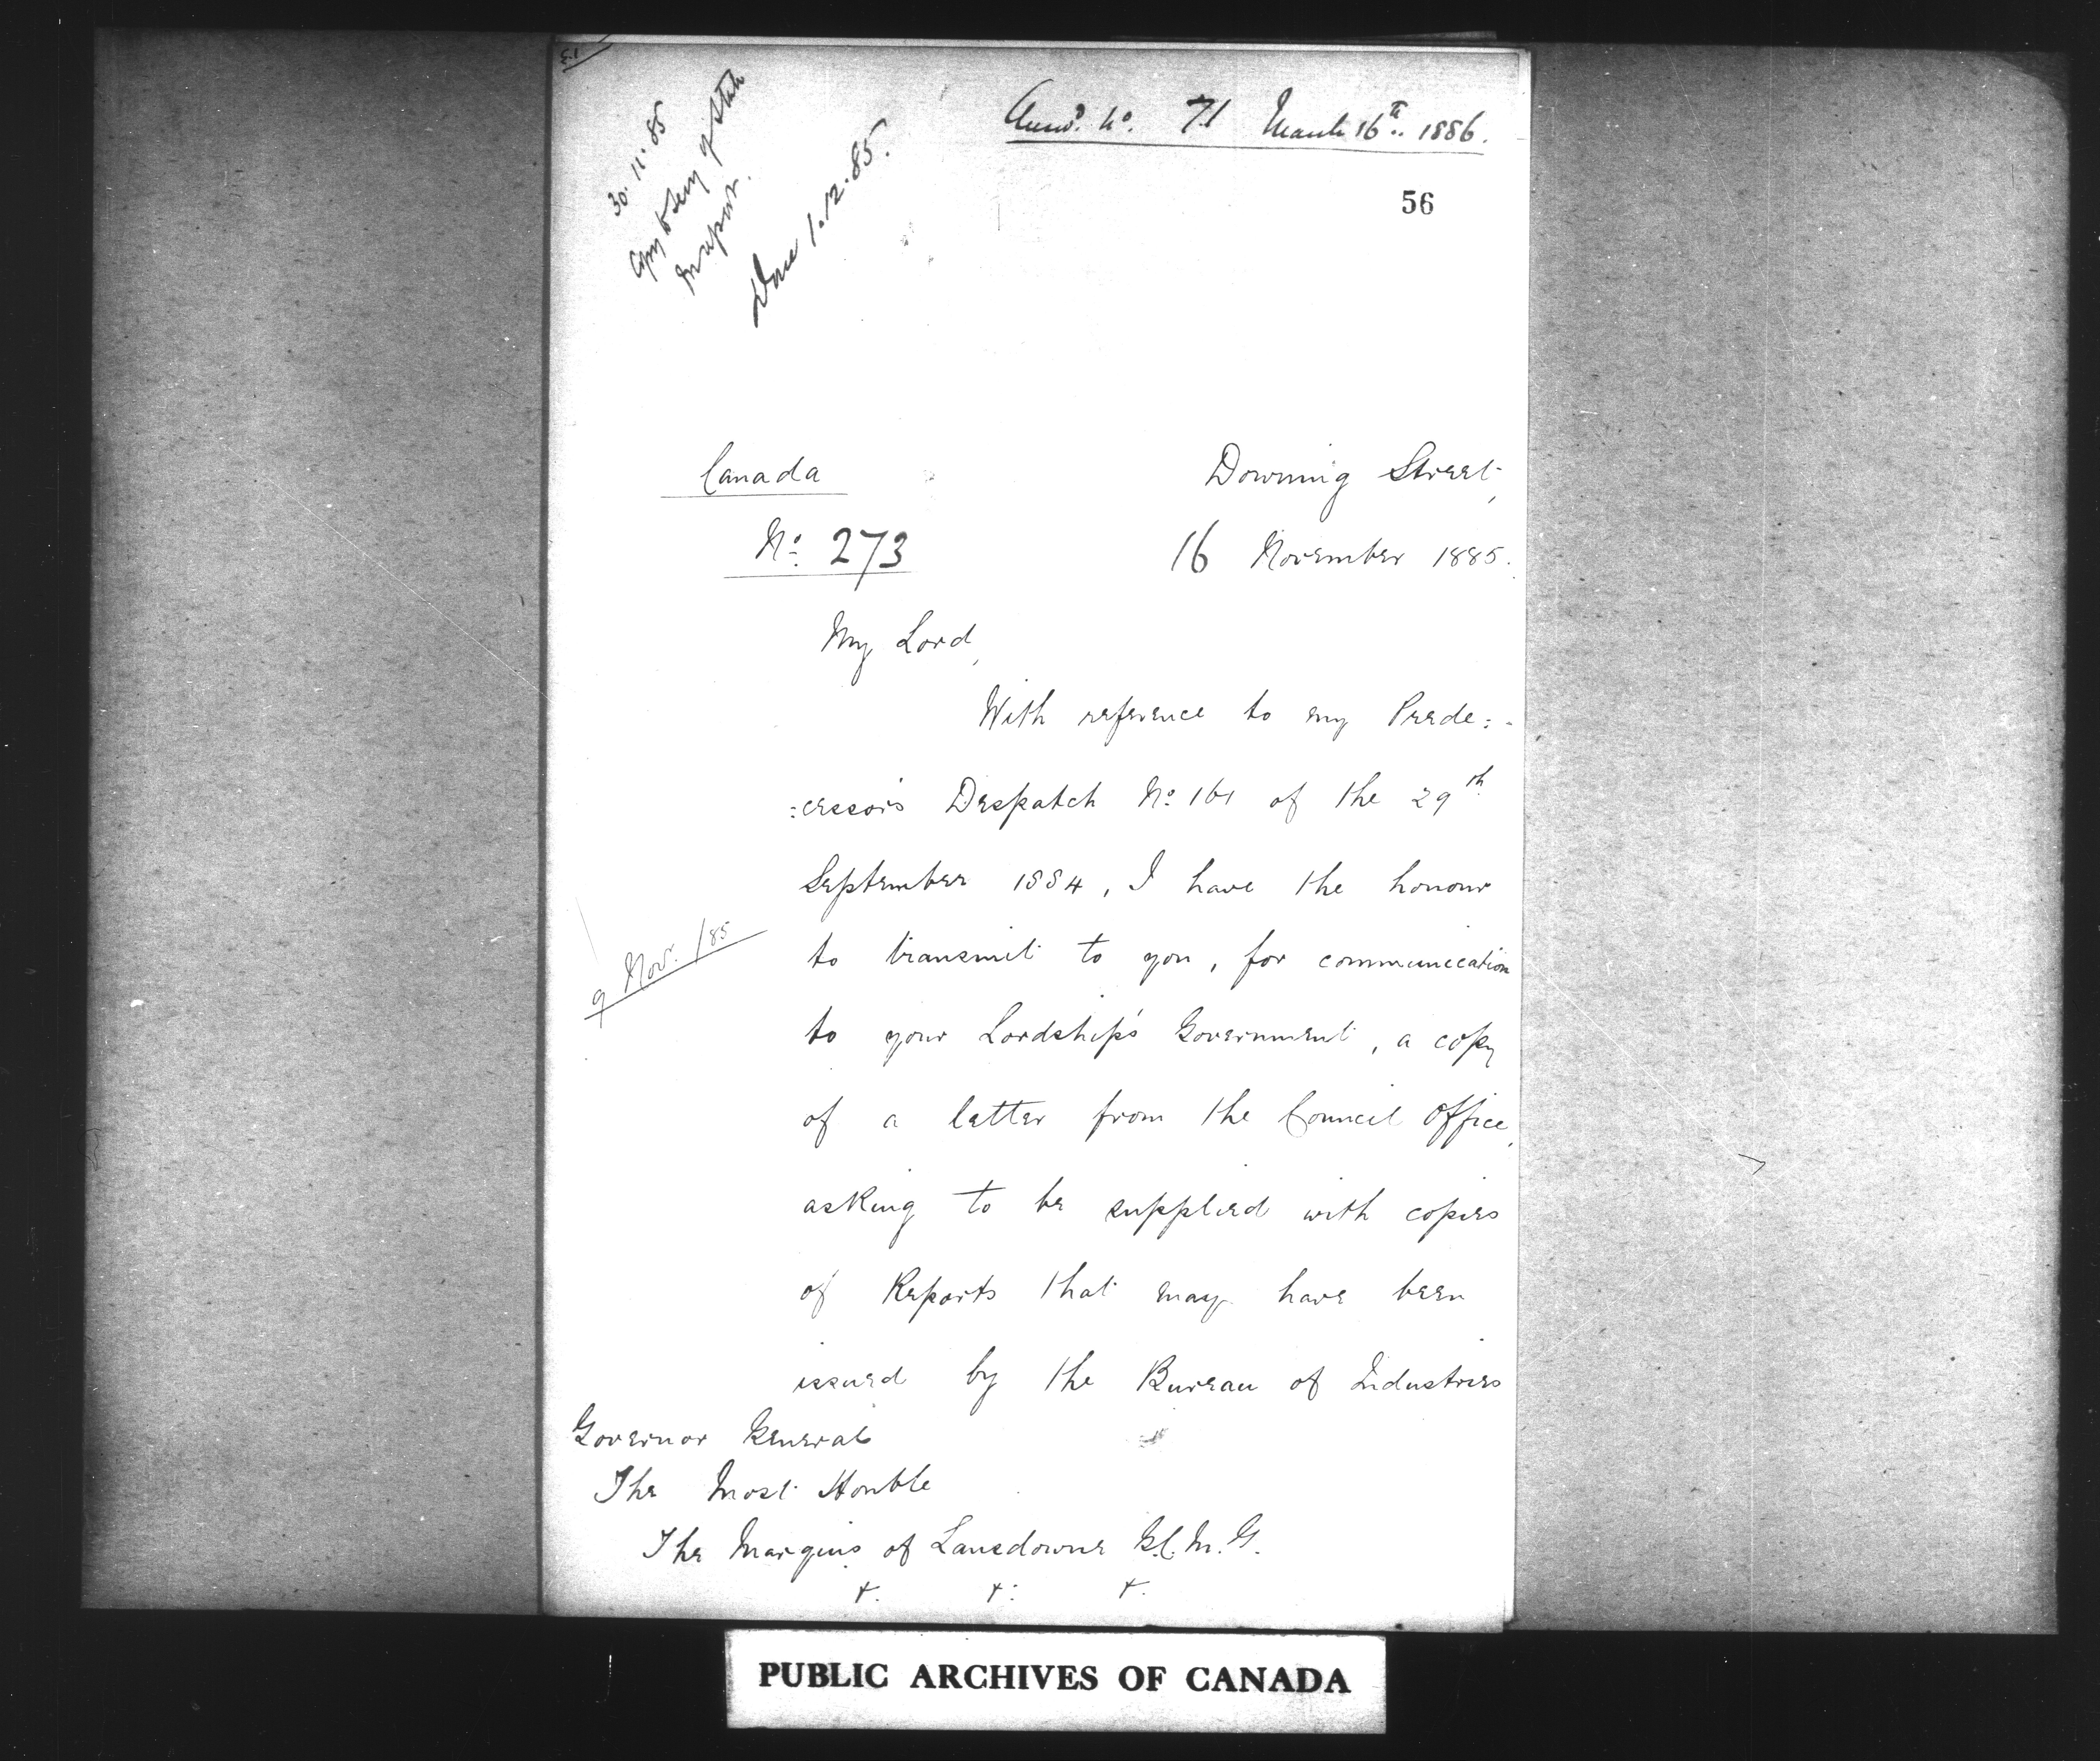 Answd. No. 71 March 16th. 1886.
30.11.85
Copy to Secy of State
for report.
Done 1.12.85.
56
Canada
Downing Street,
No. 273
16 November 1885.
My Lord,
With reference to my Prede:
:cessor's Despatch No. 161 of the 29th
September 1884, I have the honour
9 Nov./85
to transmit to you, for communication
to your Lordship's Government, a copy
of a letter from the Council Office,
asking to be supplied with copies
of Reports that may have been
issued by the Bureau of Industries
Governor General
The Most Honble
The Marquis of Lansdowne G.C.M.G.
&. &. &.
PUBLIC ARCHIVES OF CANADA